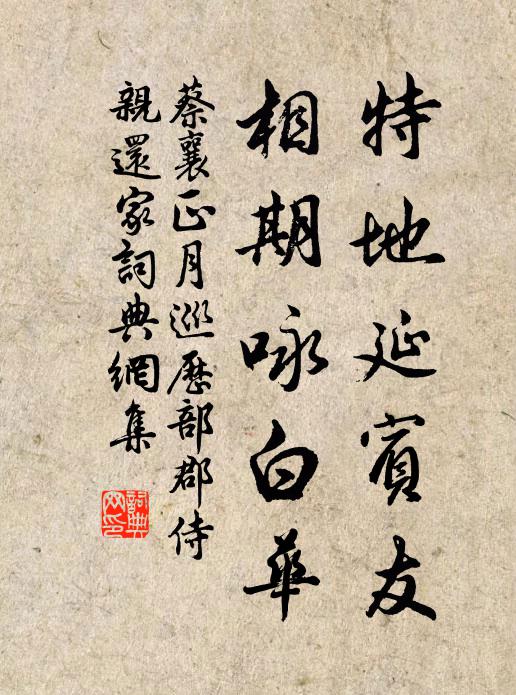 特地延賓友
相期咏白華
蔡襄正月巡歷部郡侍
親還家詞典網集
詞典
网印